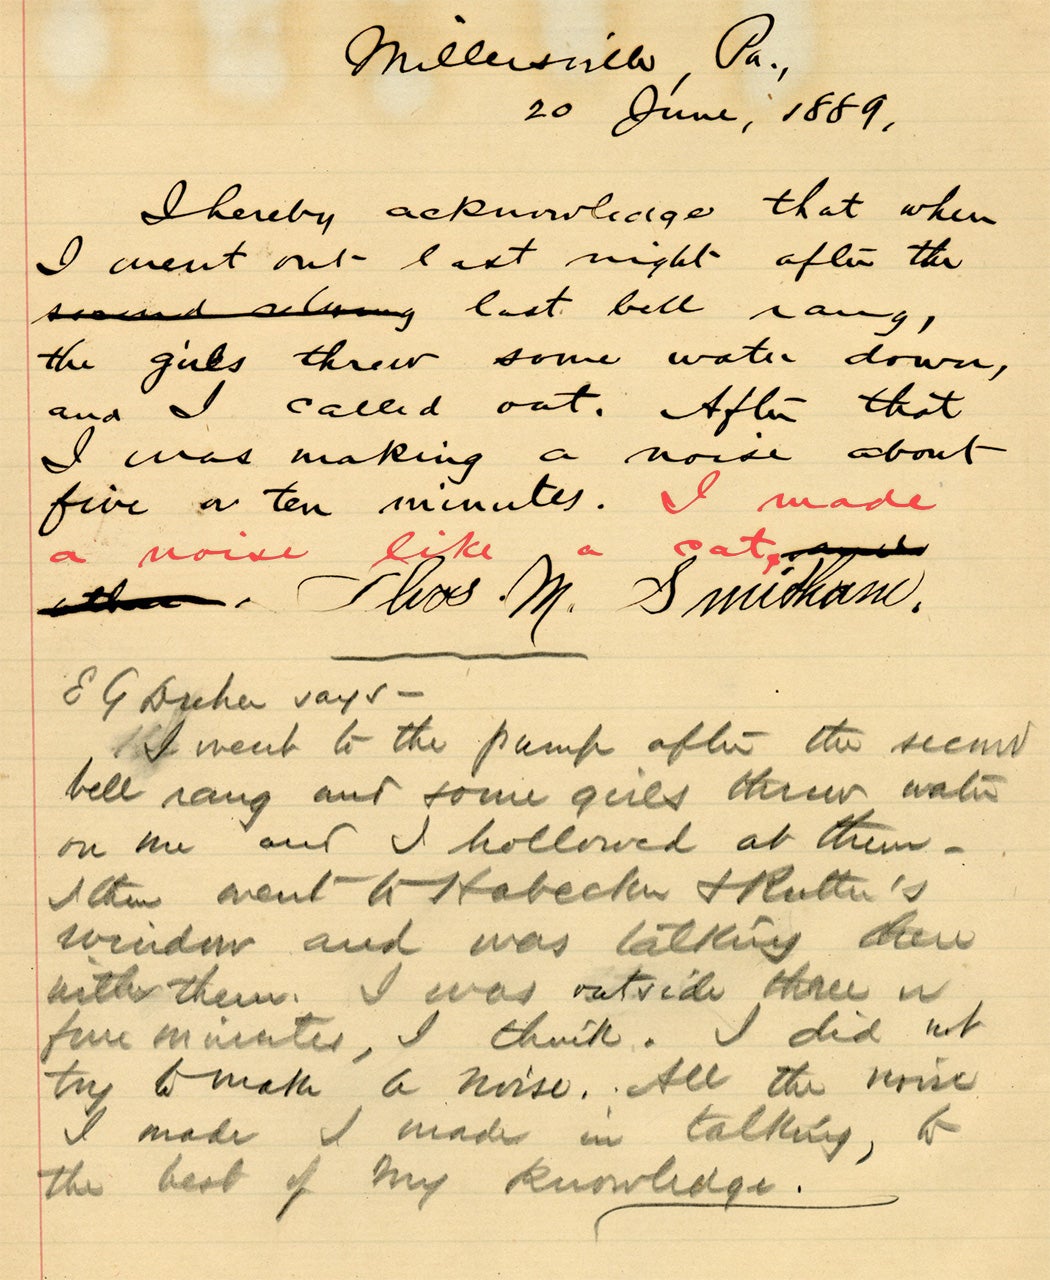 Millersville, Pa.,
20 June, 1889.
I hereby acknowledge that when
I went out last night after the
last bell rang,
the girls threw some water down,
and I called out. After that
I was making a noise about
five or ten minutes. I made
a noise like a cat,
Thos. M. Smitham.
E G says —
I went to the pump after the second
bell rang and some girls threw water
on me and I hollowed at them —
I then went to Habecker & Rutter's
window and was talking there
with them. I was outside three or
five minutes, I think. I did not
try to make a noise. All the noise
I made I made in talking, to
the best of my knowledge.